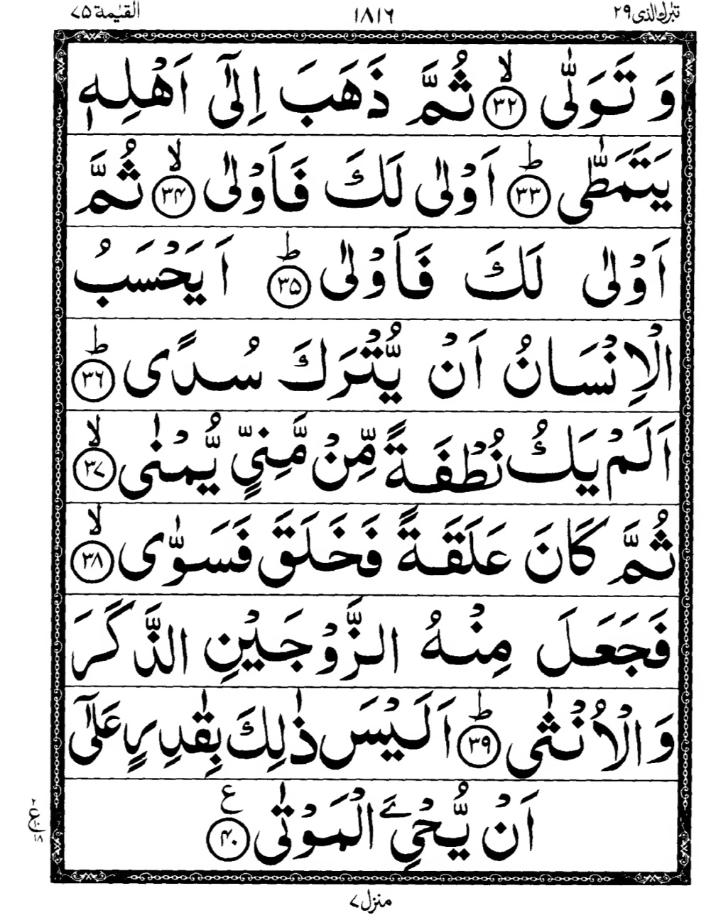 تبرك الذى ٢٩ ١٨١٦ القيمة ٧٥
وَ تَوَلّٰى ۙ﴿۳۲﴾ ثُمَّ ذَهَبَ اِلٰۤى اَهْلِهٖ
يَتَمَطّٰى ؕ﴿۳۳﴾ اَوْلٰى لَكَ فَاَوْلٰى ۙ﴿۳۴﴾ ثُمَّ
اَوْلٰى لَكَ فَاَوْلٰى ؕ﴿۳۵﴾ اَيَحْسَبُ
الْاِنْسَانُ اَنْ يُّتْرَكَ سُدًى ؕ﴿۳۶﴾
اَلَمْ يَكُ نُطْفَةً مِّنْ مَّنِيٍّ يُّمْنٰى ۙ﴿۳۷﴾
ثُمَّ كَانَ عَلَقَةً فَخَلَقَ فَسَوّٰى ۙ﴿۳۸﴾
فَجَعَلَ مِنْهُ الزَّوْجَيْنِ الذَّكَرَ
وَالْاُنْثٰى ؕ﴿۳۹﴾ اَلَيْسَ ذٰلِكَ بِقٰدِرٍ عَلٰۤى
اَنْ يُّحْيِۦَ الْمَوْتٰى ﴿۴۰﴾ ع
منزل ۷